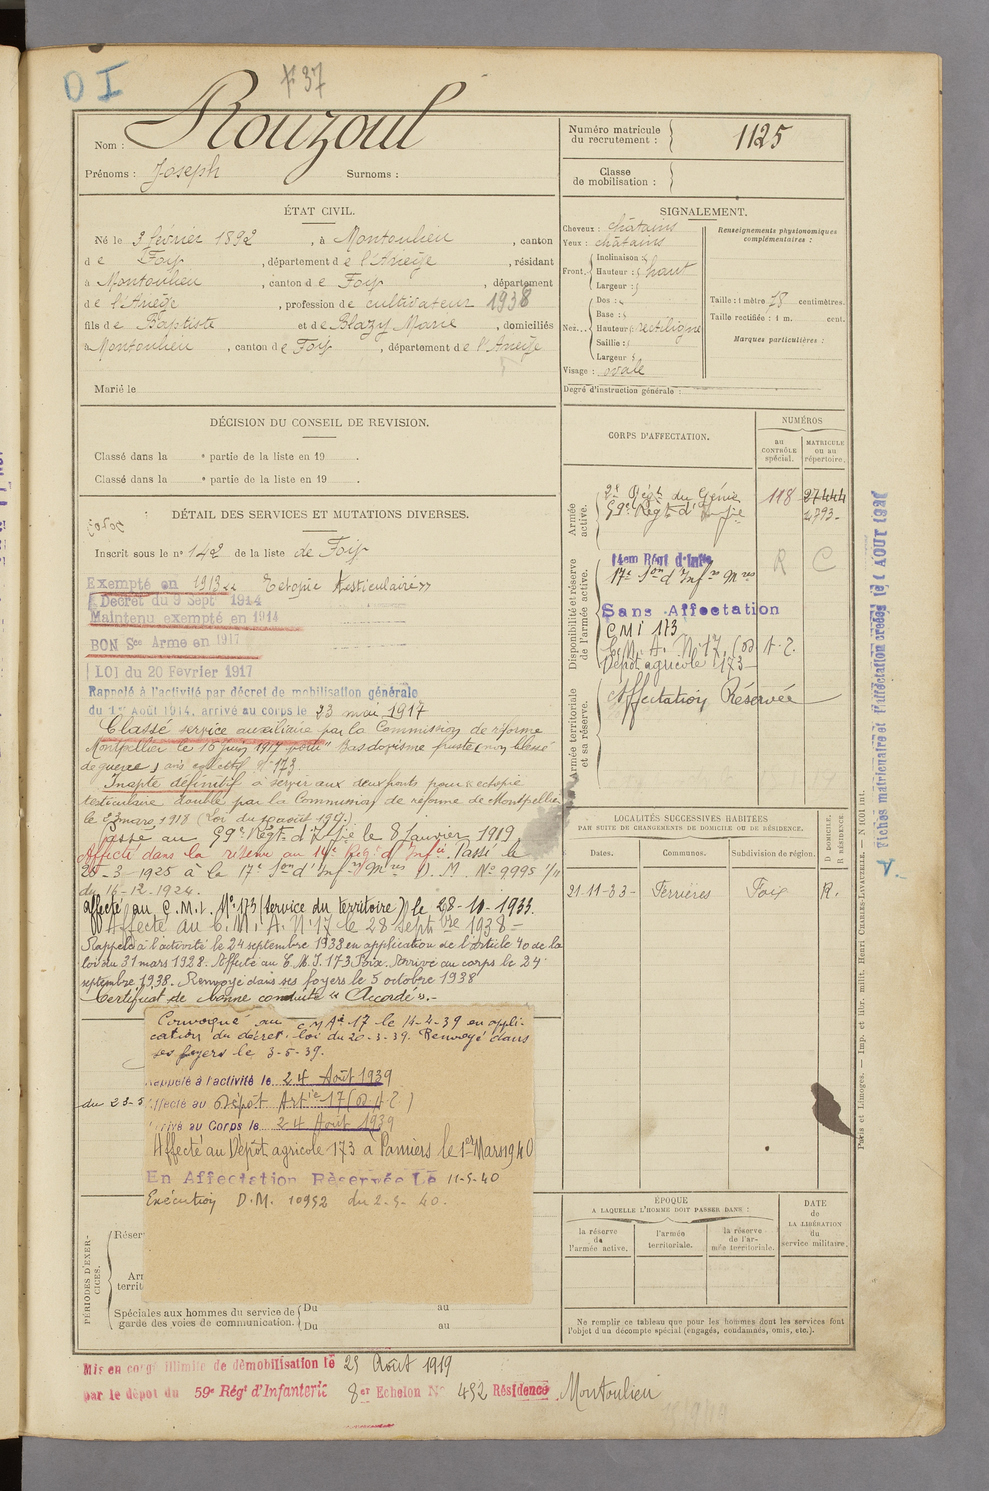 D I
F 37
Nom : Rouzoul
Prénoms : Joseph Surnoms :
Numéro matricule du recrutement : 1125
Classe de mobilisation :
ÉTAT CIVIL.
Né le 3 février 1892, à Montoulieu, canton
de Foix, département de l'Ariège, résidant
à Montoulieu, canton de Foix, département
de l'Ariège, profession de cultivateur 1938
fils de Baptiste et de Blazy Marie, domiciliés
à Montoulieu, canton de Foix, département de l'Ariège
Marié le
SIGNALEMENT.
Cheveux : châtains
Yeux : châtains
Front. Inclinaison :
Hauteur : haut
Largeur :
Nez... Dos :
Base :
Hauteur : rectiligne
Saillie :
Largeur :
Visage : ovale
Renseignements physionomiques complémentaires :
Taille : 1 mètre 78 centimètres.
Taille rectifiée : 1 m. cent.
Marques particulières :
Degré d'instruction générale :
DÉCISION DU CONSEIL DE REVISION.
Classé dans la e partie de la liste en 19 .
Classé dans la e partie de la liste en 19 .
DÉTAIL DES SERVICES ET MUTATIONS DIVERSES.
Inscrit sous le n° 142 de la liste de Foix
Exempté en 1913 "Ectopie testiculaire"
Décret du 9 Septe 1914
Maintenu exempté en 1914
BON Sce Arme en 1917
LOI du 20 Février 1917
Rappelé à l'activité par décret de mobilisation générale
du 1er Août 1914, arrivé au corps le 23 mai 1917
Classé service auxiliaire par la Commission de réforme
Montpellier le 16 juin 1917 pour "Basdorisme fruste (non blessé
de guerre) avis collectif n° 173
Inapte définitif à servir aux deux ponts pour ectopie
testiculaire double par la Commission de réforme de Montpellier
le mars 1918 (Loi du 10 août 1917.)
Passé au 59e Régt d'Infie le 8 Janvier 1919
Affecté dans la réserve au 14e Régt d'Infie Passé le
25-3-1925 à la 17e Son d'Infrs Mres D. M. No 9995 1/11
du 16-12.1924.
affecté au C.M.I. No 173 (Service du territoire) le 28-10-1933.
Affecté au C.M.A. N°17 le 28 Septbre 1938 -
Rappelé à l'activité le 24 septembre 1938 en application de l'article 40 de la
loi du 31 mars 1928. Affecté au C.M.I. 173 Foix. Arrivé au corps le 24
septembre 1938. Renvoyé dans ses foyers le 5 octobre 1938
Certificat de bonne conduite "Accordé".-
Convoqué au C M A 17 le 14-2-39 en appli-
cation du décret-loi du 20-3-39. Renvoyé dans
ses foyers le 3-5-39.
Rappelé à l'activité le 24 Août 1939
du 23-5 Affecté au Dépôt Artie 17 (D A T)
Arrivé au Corps le 24 Août 1939
Affecté au Dépôt agricole 173 à Pamiers le 1er Mars 1940
En Affectation Réservée Le 11-5-40
Exécution D.M. 10952 du 2-5-40.
CORPS D'AFFECTATION.
NUMÉROS
AU CONTRÔLE spécial.
MATRICULE OU AU répertoire.
Armée active.
2e Régt du Génie 118 27444
59e Régt d'Infie 2793-
Disponibilité et réserve de l'armée active.
14em Régt d'Infie R C
17e Son d'Infrs Mres
Sans Affectation
C M I 173
C.M.A. N°17, (D.A.T.
Dépôt agricole 173-
Armée territoriale et sa réserve.
Affectation Réservée
LOCALITÉS SUCCESSIVES HABITÉES
PAR SUITE DE CHANGEMENTS DE DOMICILE OU DE RÉSIDENCE.
Dates. Communes. Subdivision de région. D. DOMICILE. R. RÉSIDENCE.
21-11-33- Ferrières Foix R.
PÉRIODES D'EXERCICES.
Réser
Ar
territ
Spéciales aux hommes du service de garde des voies de communication. Du au
Du au
ÉPOQUE
A LAQUELLE L'HOMME DOIT PASSER DANS :
la réserve de l'armée active.
l'armée territoriale.
la réserve de l'armée territoriale.
DATE de LA LIBÉRATION du service militaire.
Ne remplir ce tableau que pour les hommes dont les services font
l'objet d'un décompte spécial (engagés, condamnés, omis, etc.).
Mis en congé illimité de démobilisation le 29 Août 1919
par le dépôt du 59e Régt d'Infanterie 8er Echelon N° 492 Résidence Montoulieu
Paris et Limoges. — Imp. et libr. milit. Henri CHARLES-LAVAUZELLE. — N 1001 int.
Fiches matriculaire et d'affectation créées le AOUT 192